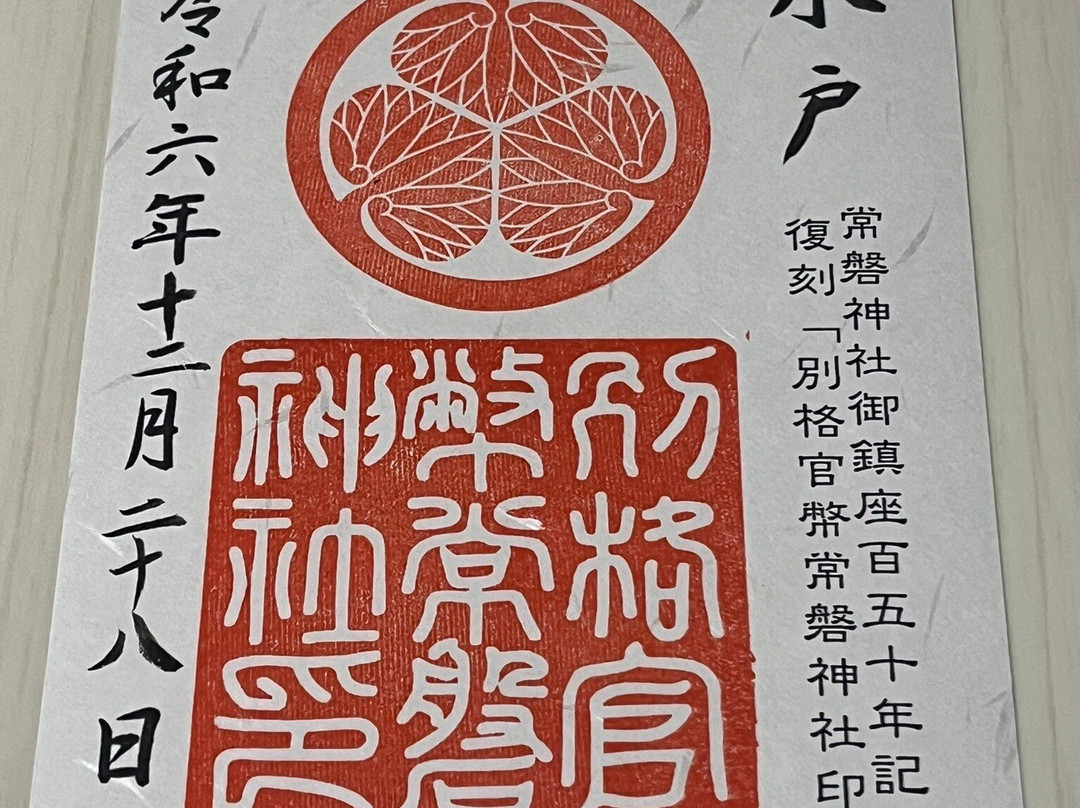 水戸
常磐神社御鎮座百五十年記
復刻「別格官幣常磐神社印
別格官
幣常磐
神社印
令和六年十二月二十八日